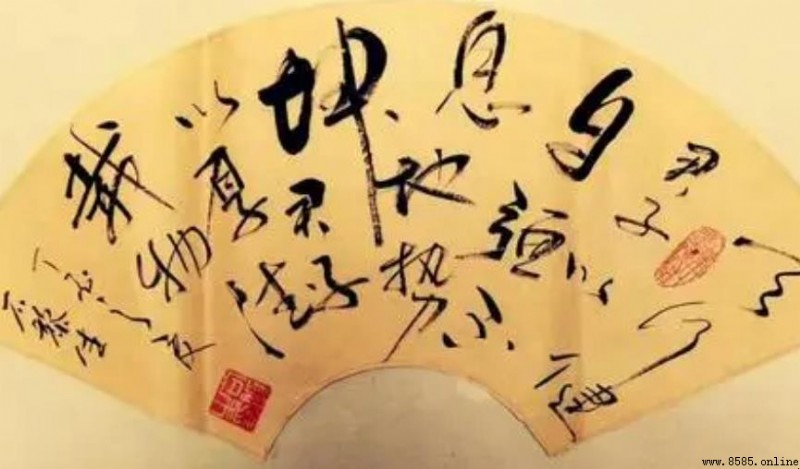 天行健
君子以
自强不
息地势
坤君子
以厚德
载物
www.8585.online